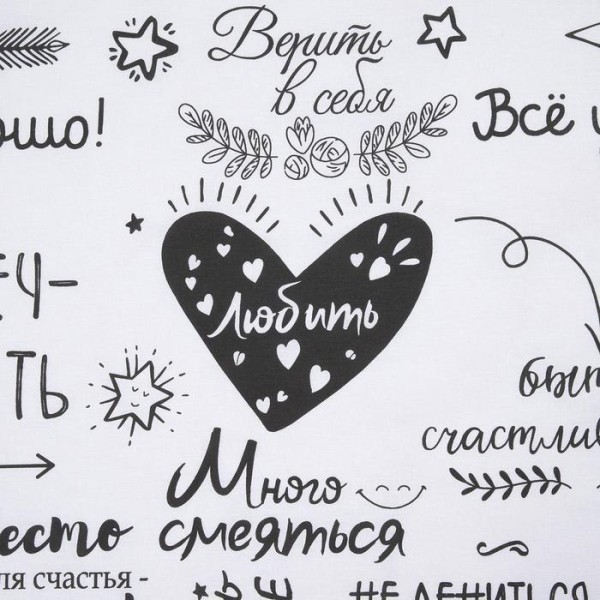 Верить
в себя
ошо!
Всё
Любить
ТЬ
счастли
Много
смеяться
есто
ля счастья -
НЕ ЛЕНИТЬСЯ